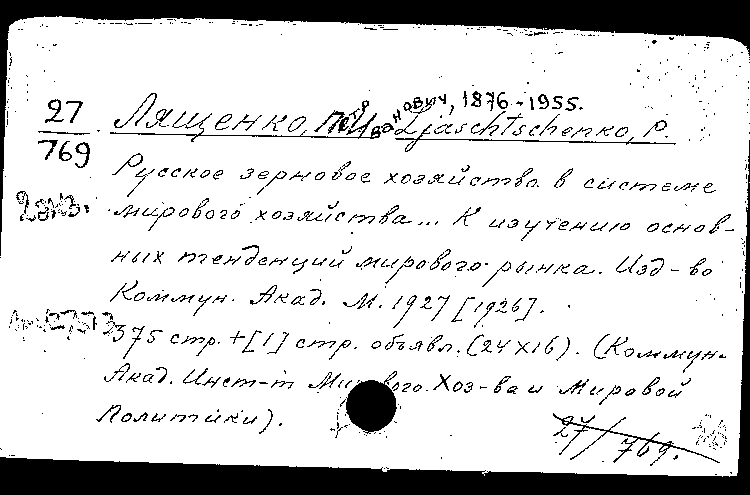 27
769
Лященко, П. Иванович, 1876-1955. Ljaschtschenko, P.
Русское зерновое хозяйство в системе
2 экз. мирового хозяйства... К изучению основ-
ных тенденций мирового рынка. Изд-во
Коммун. Акад. М. 1927 [1926].
375 стр. + [1] стр. объявл. (24х16). (Коммун.
Акад. Инст-т Мирового Хоз-ва и Мировой
Политики).
27/769.